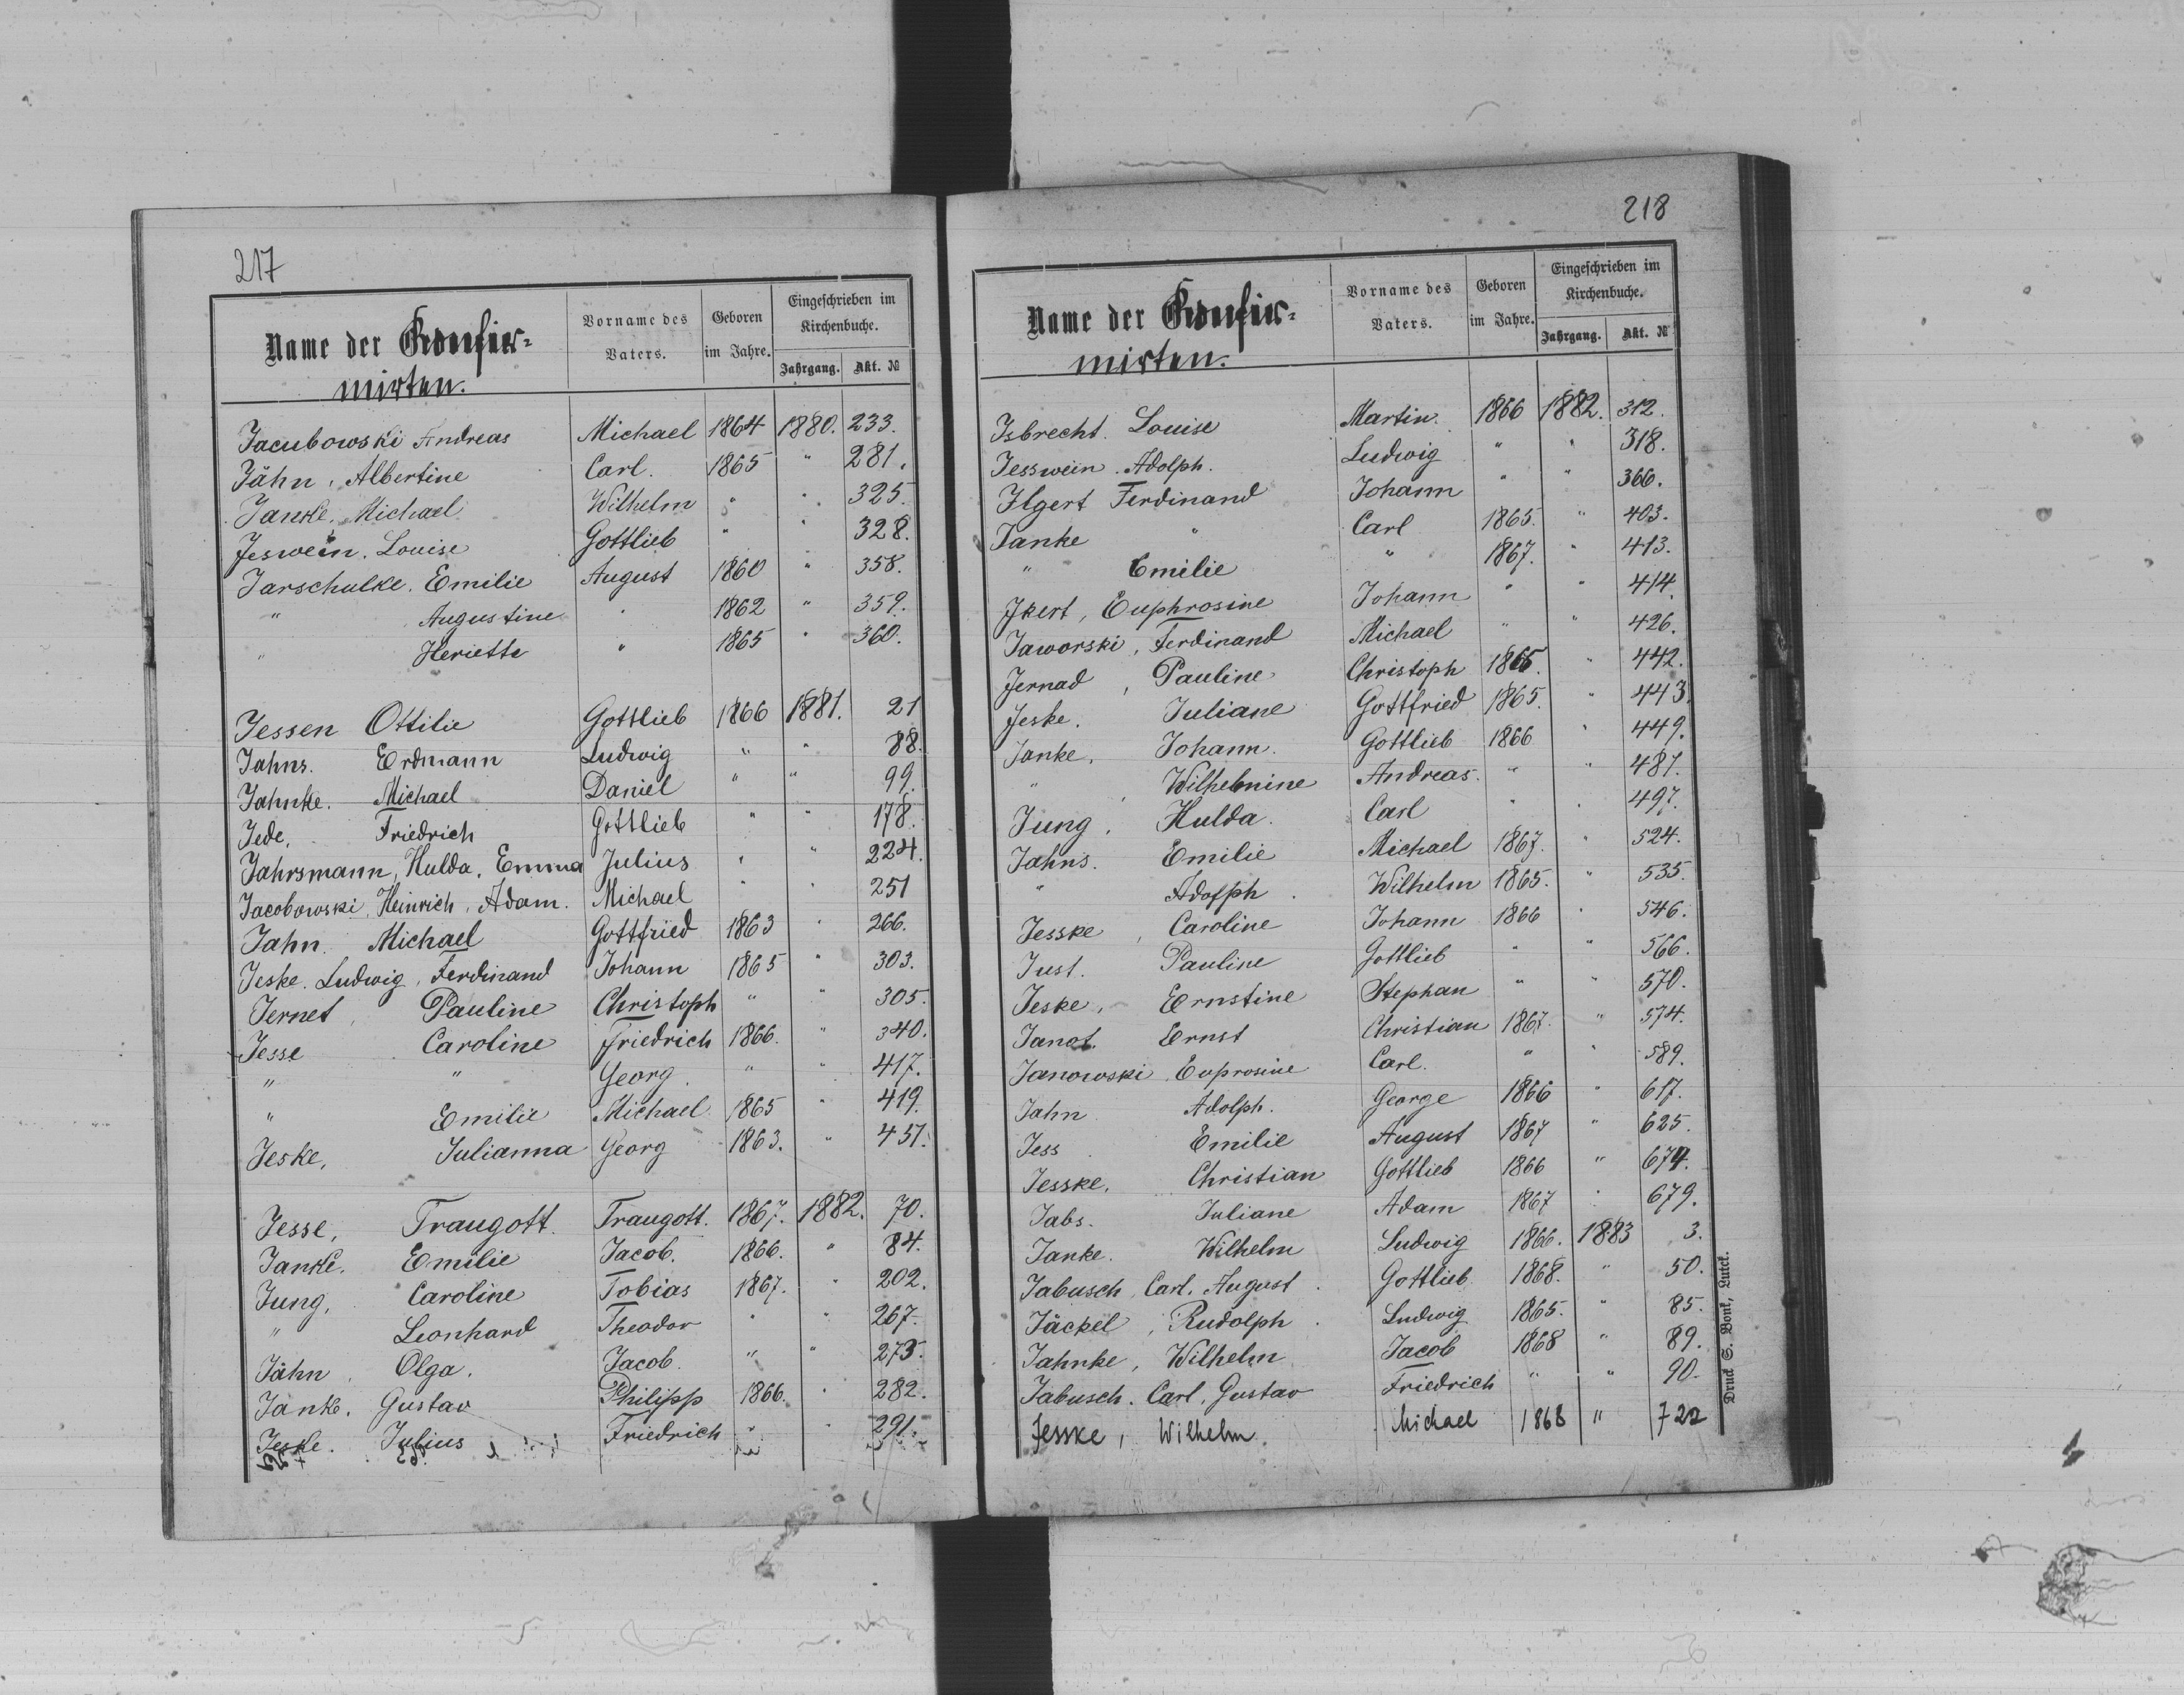 217
Name der Konfir=
mirten.
Vorname des
Vaters.
Geboren
im Jahre.
Eingeschrieben im
Kirchenbuche.
Jahrgang. Akt. №
Jacubowski Andreas Michael 1864 1880. 233.
Jähn, Albertine Carl. 1865 " 281.
Janke, Michael Wilhelm " " 325.
Jeswein. Louise Gottlieb " " 328.
Jarschulke. Emilie August 1860 " 358.
" Augustine " 1862 " 359.
" Heriette " 1865 " 360.
Jessen Ottilie Gottlieb 1866 1881. 21
Jahns. Erdmann Ludwig " " 88.
Jahnke. Michael Daniel " " 99.
Jede, Friedrich Gottlieb " " 178.
Jahrsmann, Hulda, Emma Julius " " 224.
Jacobowski, Heinrich, Adam. Michael " " 251
Jahn. Michael Gottfried 1863 " 266.
Jeske. Ludwig, Ferdinand Johann 1865 " 303.
Jernet, Pauline Christoph " " 305.
Jesse Caroline Friedrich 1866. " 340.
" " Georg. " " 417.
" Emilie Michael 1865 " 419.
Jeske, Julianna Georg 1863. " 451.
Jesse, Traugott. Traugott. 1867. 1882. 70.
Janke. Emilie Jacob. 1866. " 84.
Jung, Caroline Tobias 1867. " 202.
" Leonhard Theodor " " 267.
Jähn, Olga. Jacob. " " 273.
Janke. Gustav Philipp 1866. " 282.
Jeske. Julius Friedrich " " 291.
218
Name der Konfir=
mirten.
Vorname des
Vaters.
Geboren
im Jahre.
Eingeschrieben im
Kirchenbuche.
Jahrgang. Akt. №
Isbrecht. Louise Martin. 1866 1882. 312.
Jesswein. Adolph. Ludwig " " 318.
Ilgert Ferdinand Johann " " 366.
Janke " Carl 1865. " 403.
" Emilie " 1867. " 413.
Jkert, Euphrosine Johann " " 414.
Jaworski, Ferdinand Michael " " 426.
Jernad, Pauline Christoph 1865. " 442.
Jeske. Juliane Gottfried 1865. " 443.
Janke, Johann. Gottlieb 1866 " 449.
" Wilhelmine Andreas. " " 481.
Jung, Hulda. Carl " " 497.
Jahns. Emilie Michael 1867. " 524.
" Adolph. Wilhelm 1865. " 535.
Jesske, Caroline Johann 1866 " 546.
Just. Pauline Gottlieb " " 566.
Jeske, Ernstine Stephan " " 570.
Janot. Ernst Christian 1867. " 574.
Janowski, Euprosine Carl. " " 589.
Jahn Adolph. George 1866 " 617.
Jess. Emilie August 1867 " 625.
Jesske, Christian Gottlieb 1866 " 674.
Jabs. Juliane Adam 1867 " 679.
Janke. Wilhelm Ludwig 1866. 1883 3.
Jabusch, Carl, August. Gottlieb. 1868. " 50.
Jäckel, Rudolph. Ludwig 1865. " 85.
Jahnke, Wilhelm Jacob 1868 " 89.
Jabusch. Carl, Gustav Friedrich " " 90.
Jesske, Wilhelm. Michael 1868 " 722
Druck S. Bonk, Luck.